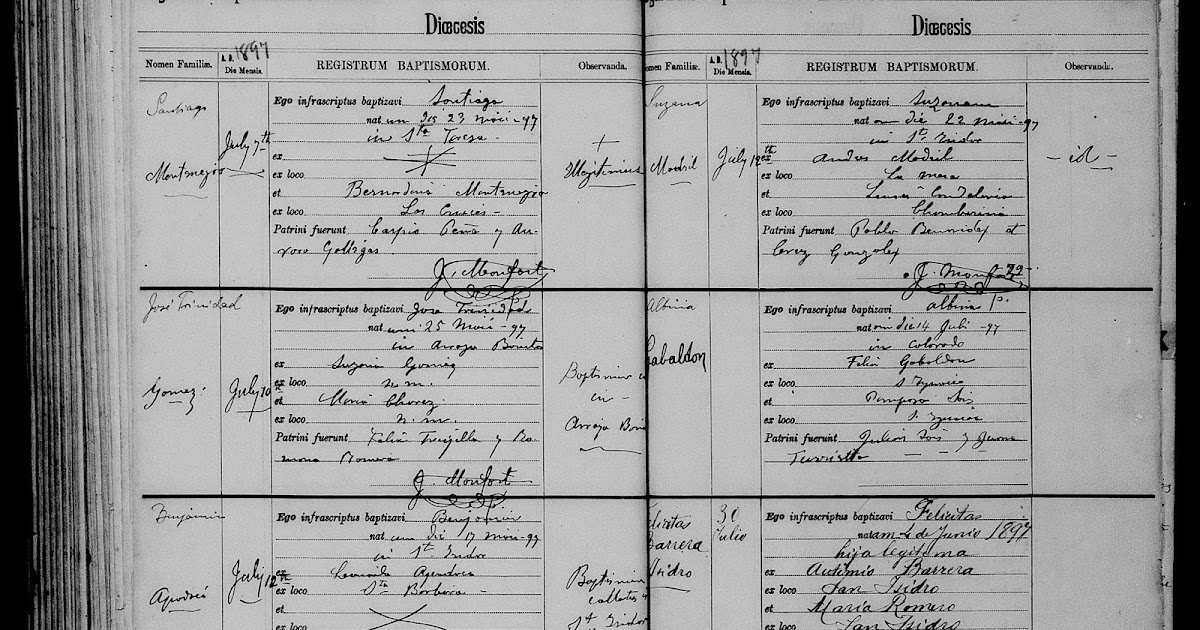 Diœcesis
Nomen Familiæ.
A.D. 1897
Die Mensis.
REGISTRUM BAPTISMORUM.
Observanda.
Santiago
Montenegro
July 7th
Ego infrascriptus baptizavi Santiago
nat um die 23 Maii - 97
in Sta Teresa
ex
ex loco
et Bernardina Montenegro
ex loco Las Cruces
Patrini fuerunt Carpio Peña y
Gallegos
J. Monfort
José Trinidad
Gomez
July 10
Ego infrascriptus baptizavi Jose Trinidad
nat um 25 Maii - 97
in Arroyo Bonito
ex Gomez
ex loco n. m.
et Maria Chavez
ex loco n. m.
Patrini fuerunt Felix Trujillo y Ro-
mona Romero
J. Monfort
in
Arroyo Boni
Benjamin
Apodaca
July 12th
Ego infrascriptus baptizavi Benjamin
nat um die 17 Maii - 97
in St. Isidor
ex Apodaca
ex loco Sta Barbara
et
ex loco
St Isidor
Diœcesis
omen Familiæ.
A.D. 1897
Die Mensis.
REGISTRUM BAPTISMORUM.
Observanda.
Suzana
Madril
July 12th
Ego infrascriptus baptizavi Suzanam
nat am die 22 Maii - 97
in St. Isidor
ex Andres Madril
ex loco La mesa
et Candelaria
ex loco Chamberina
Patrini fuerunt Pablo Benavidez et
Cruz Gonzalez
J. Monfort
- id -
Albinia
Gabaldon
Ego infrascriptus baptizavi albina p.
nat am die 14 Juli - 97
in Colorado
ex Felix Gabaldon
ex loco S. Ignacio
et Pomposa Sois
ex loco S. Ignacio
Patrini fuerunt Julian Sois y Juana
licitas
Barrera
Isidro
30
Julio
Ego infrascriptus baptizavi Felicitas
nat am 4 de Junio 1897
hija legitima
ex Antimio Barrera
ex loco San Isidro
et Maria Romero
ex loco San Isidro